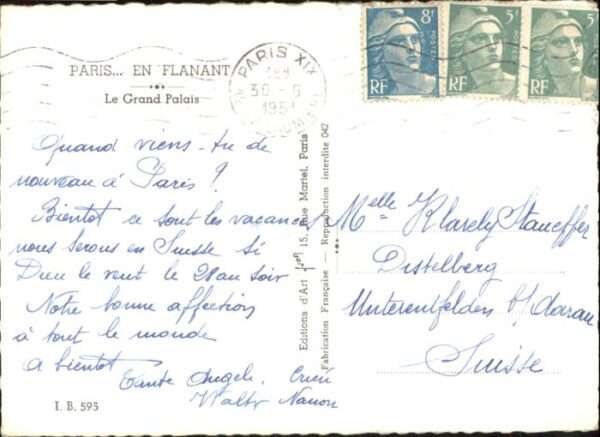 PARIS... EN FLANANT
Le Grand Palais
PARIS XIX
30 - 6
1951
8F
RF
5F
RF
5F
RF
Quand viens-tu de
nouveau à Paris ?
Bientot ce sont les vacances
nous serons en Suisse si
Dieu le veut le 28 au soir
Notre bonne affection
à tout le monde
a bientot
Tante Angele.
Walter Nanou
I. B. 595
Editions d'Art 15, Rue Martel, Paris
Fabrication Française — Reproduction interdite 042
Melle Klarely Stauffer
Distelberg
Unterentfelden b/Aarau
Suisse